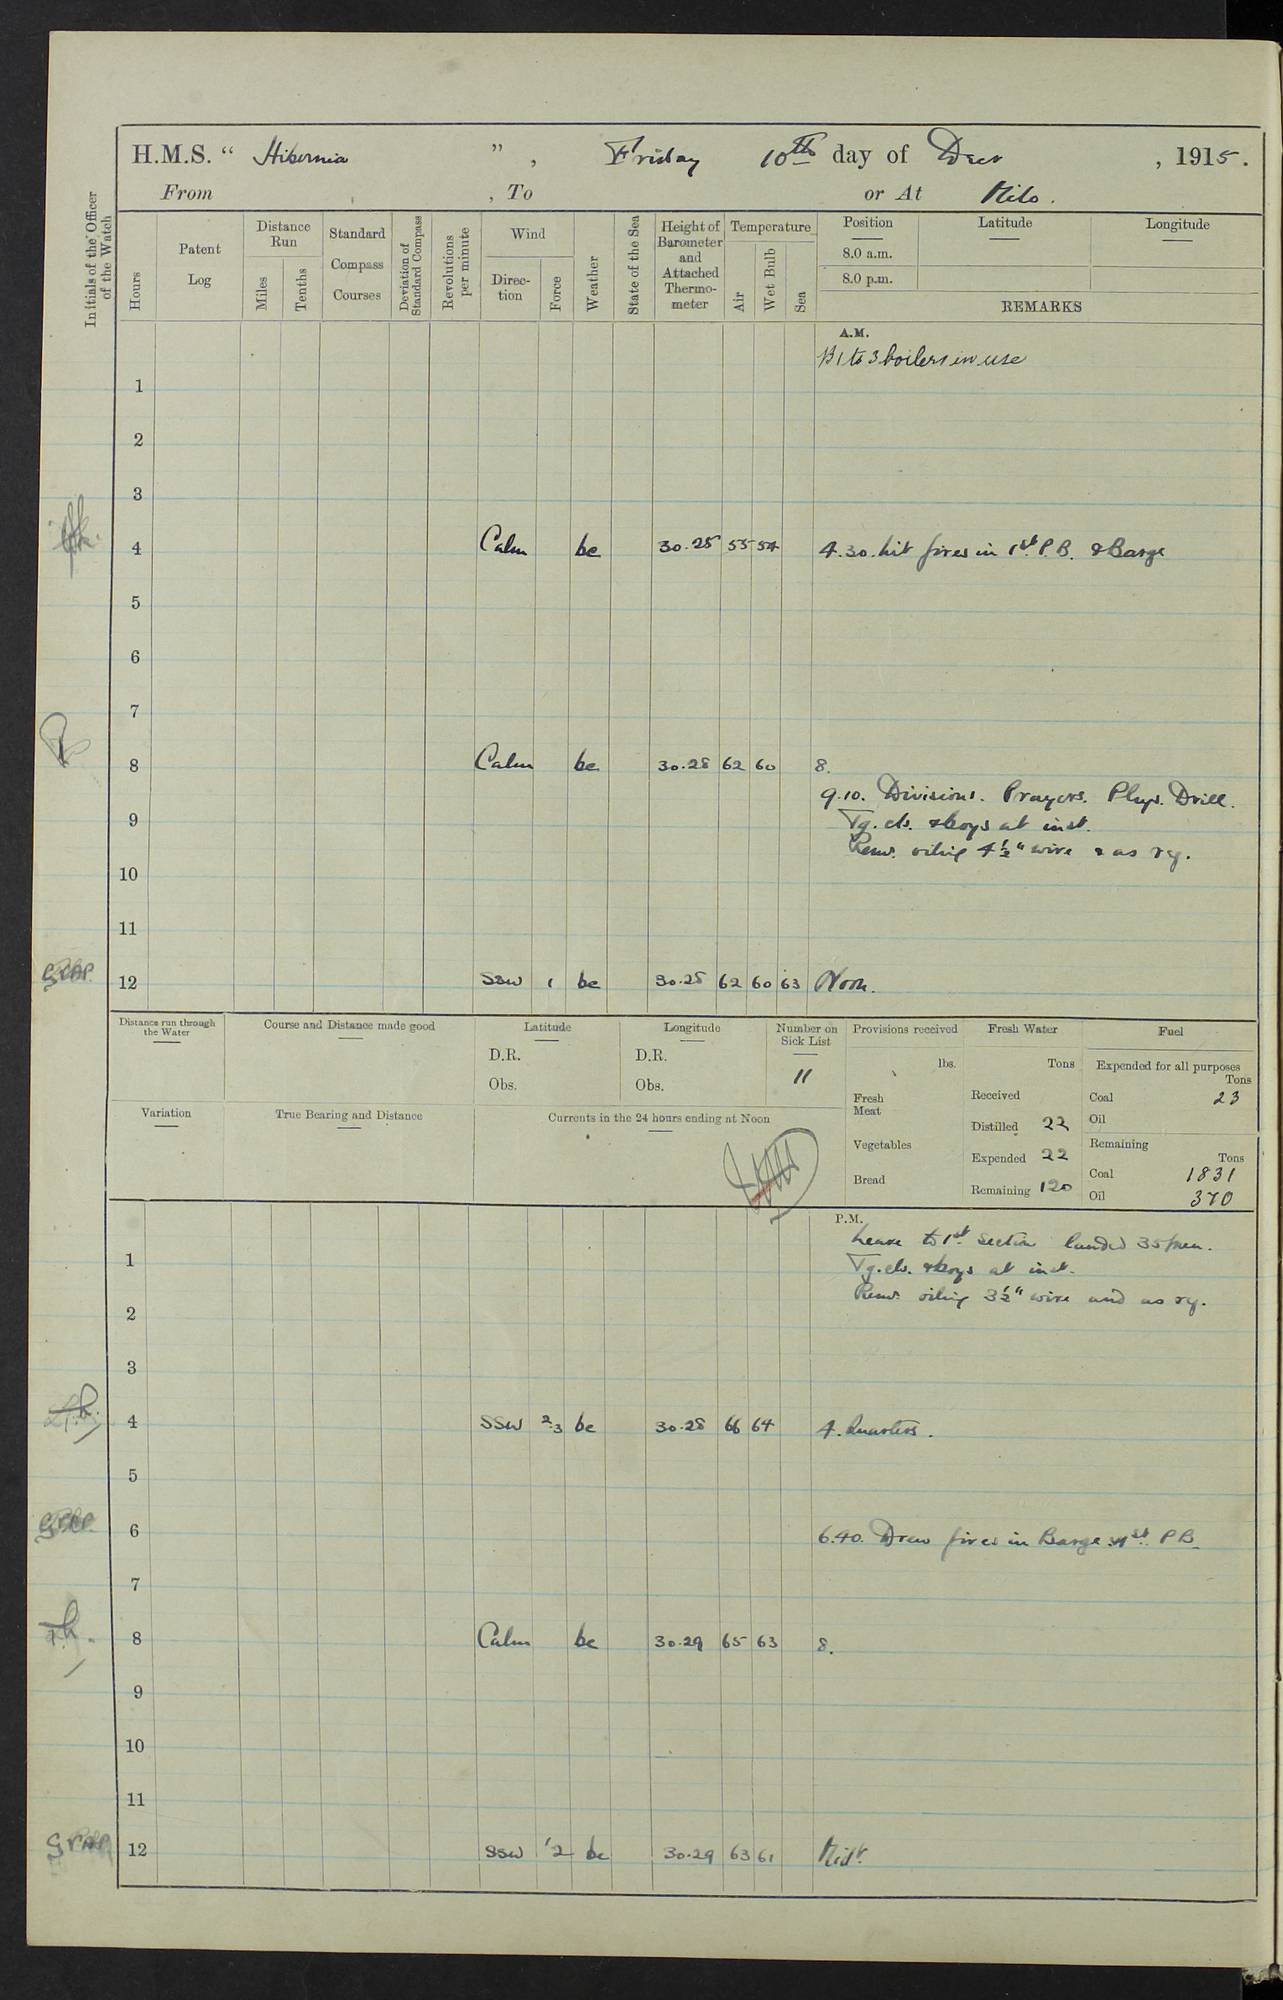 H.M.S. " Hibernia " , Friday 10th day of Decr , 1915.
From , To or At Milo.
Initials of the Officer of the Watch
Hours
Patent Log
Distance Run
Miles
Tenths
Standard Compass Courses
Deviation of Standard Compass
Revolutions per minute
Wind
Direction
Force
Weather
State of the Sea
Height of Barometer and Attached Thermometer
Temperature
Air
Wet Bulb
Sea
Position Latitude Longitude
8.0 a.m.
8.0 p.m.
REMARKS
A.M.
B 1 to 3 boilers in use
1
2
3
4 Calm bc 30.28 55 54 4.30. Lit fires in 1st P.B. & Barge
5
6
7
8 Calm bc 30.28 62 60 8.
9.10. Divisions. Prayers. Phys. Drill.
9 Tg. cls. & boys at inst.
Remr. oiling 4½" wire & as rq.
10
11
12 SSW 1 bc 30.28 62 60 63 Noon.
Distance run through the Water
Course and Distance made good
Latitude
D.R.
Obs.
Longitude
D.R.
Obs.
Number on Sick List
11
Variation
True Bearing and Distance
Currents in the 24 hours ending at Noon
Provisions received
lbs.
Fresh Meat
Vegetables
Bread
Fresh Water
Tons
Received
Distilled 22
Expended 22
Remaining 120
Fuel
Expended for all purposes
Tons
Coal 23
Oil
Remaining
Tons
Coal 1831
Oil 370
P.M.
Leave to 1st Section landed 35 men.
1 Tg. cls. & boys at inst.
Remr. oiling 3½" wire and as rq.
2
3
4 SSW 2.3 bc 30.28 66 64 4. Quarters.
5
6 6.40. Drew fires in Barge & 1st P B.
7
8 Calm bc 30.29 65 63 8.
9
10
11
12 SSW 1 2 bc 30.29 63 61 Midt.